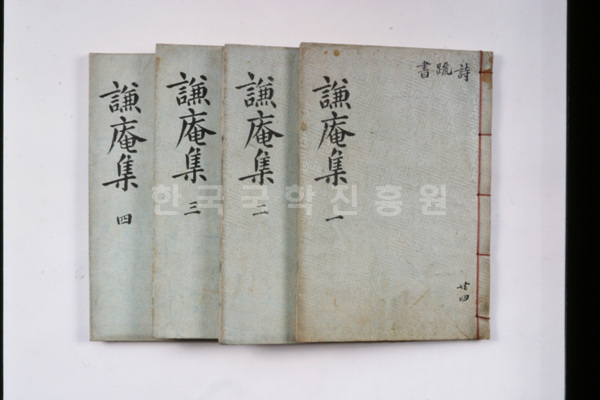 詩
疏
書
謙庵集 一
共四
謙庵集 二
謙庵集 三
謙庵集 四
한국국학진흥원